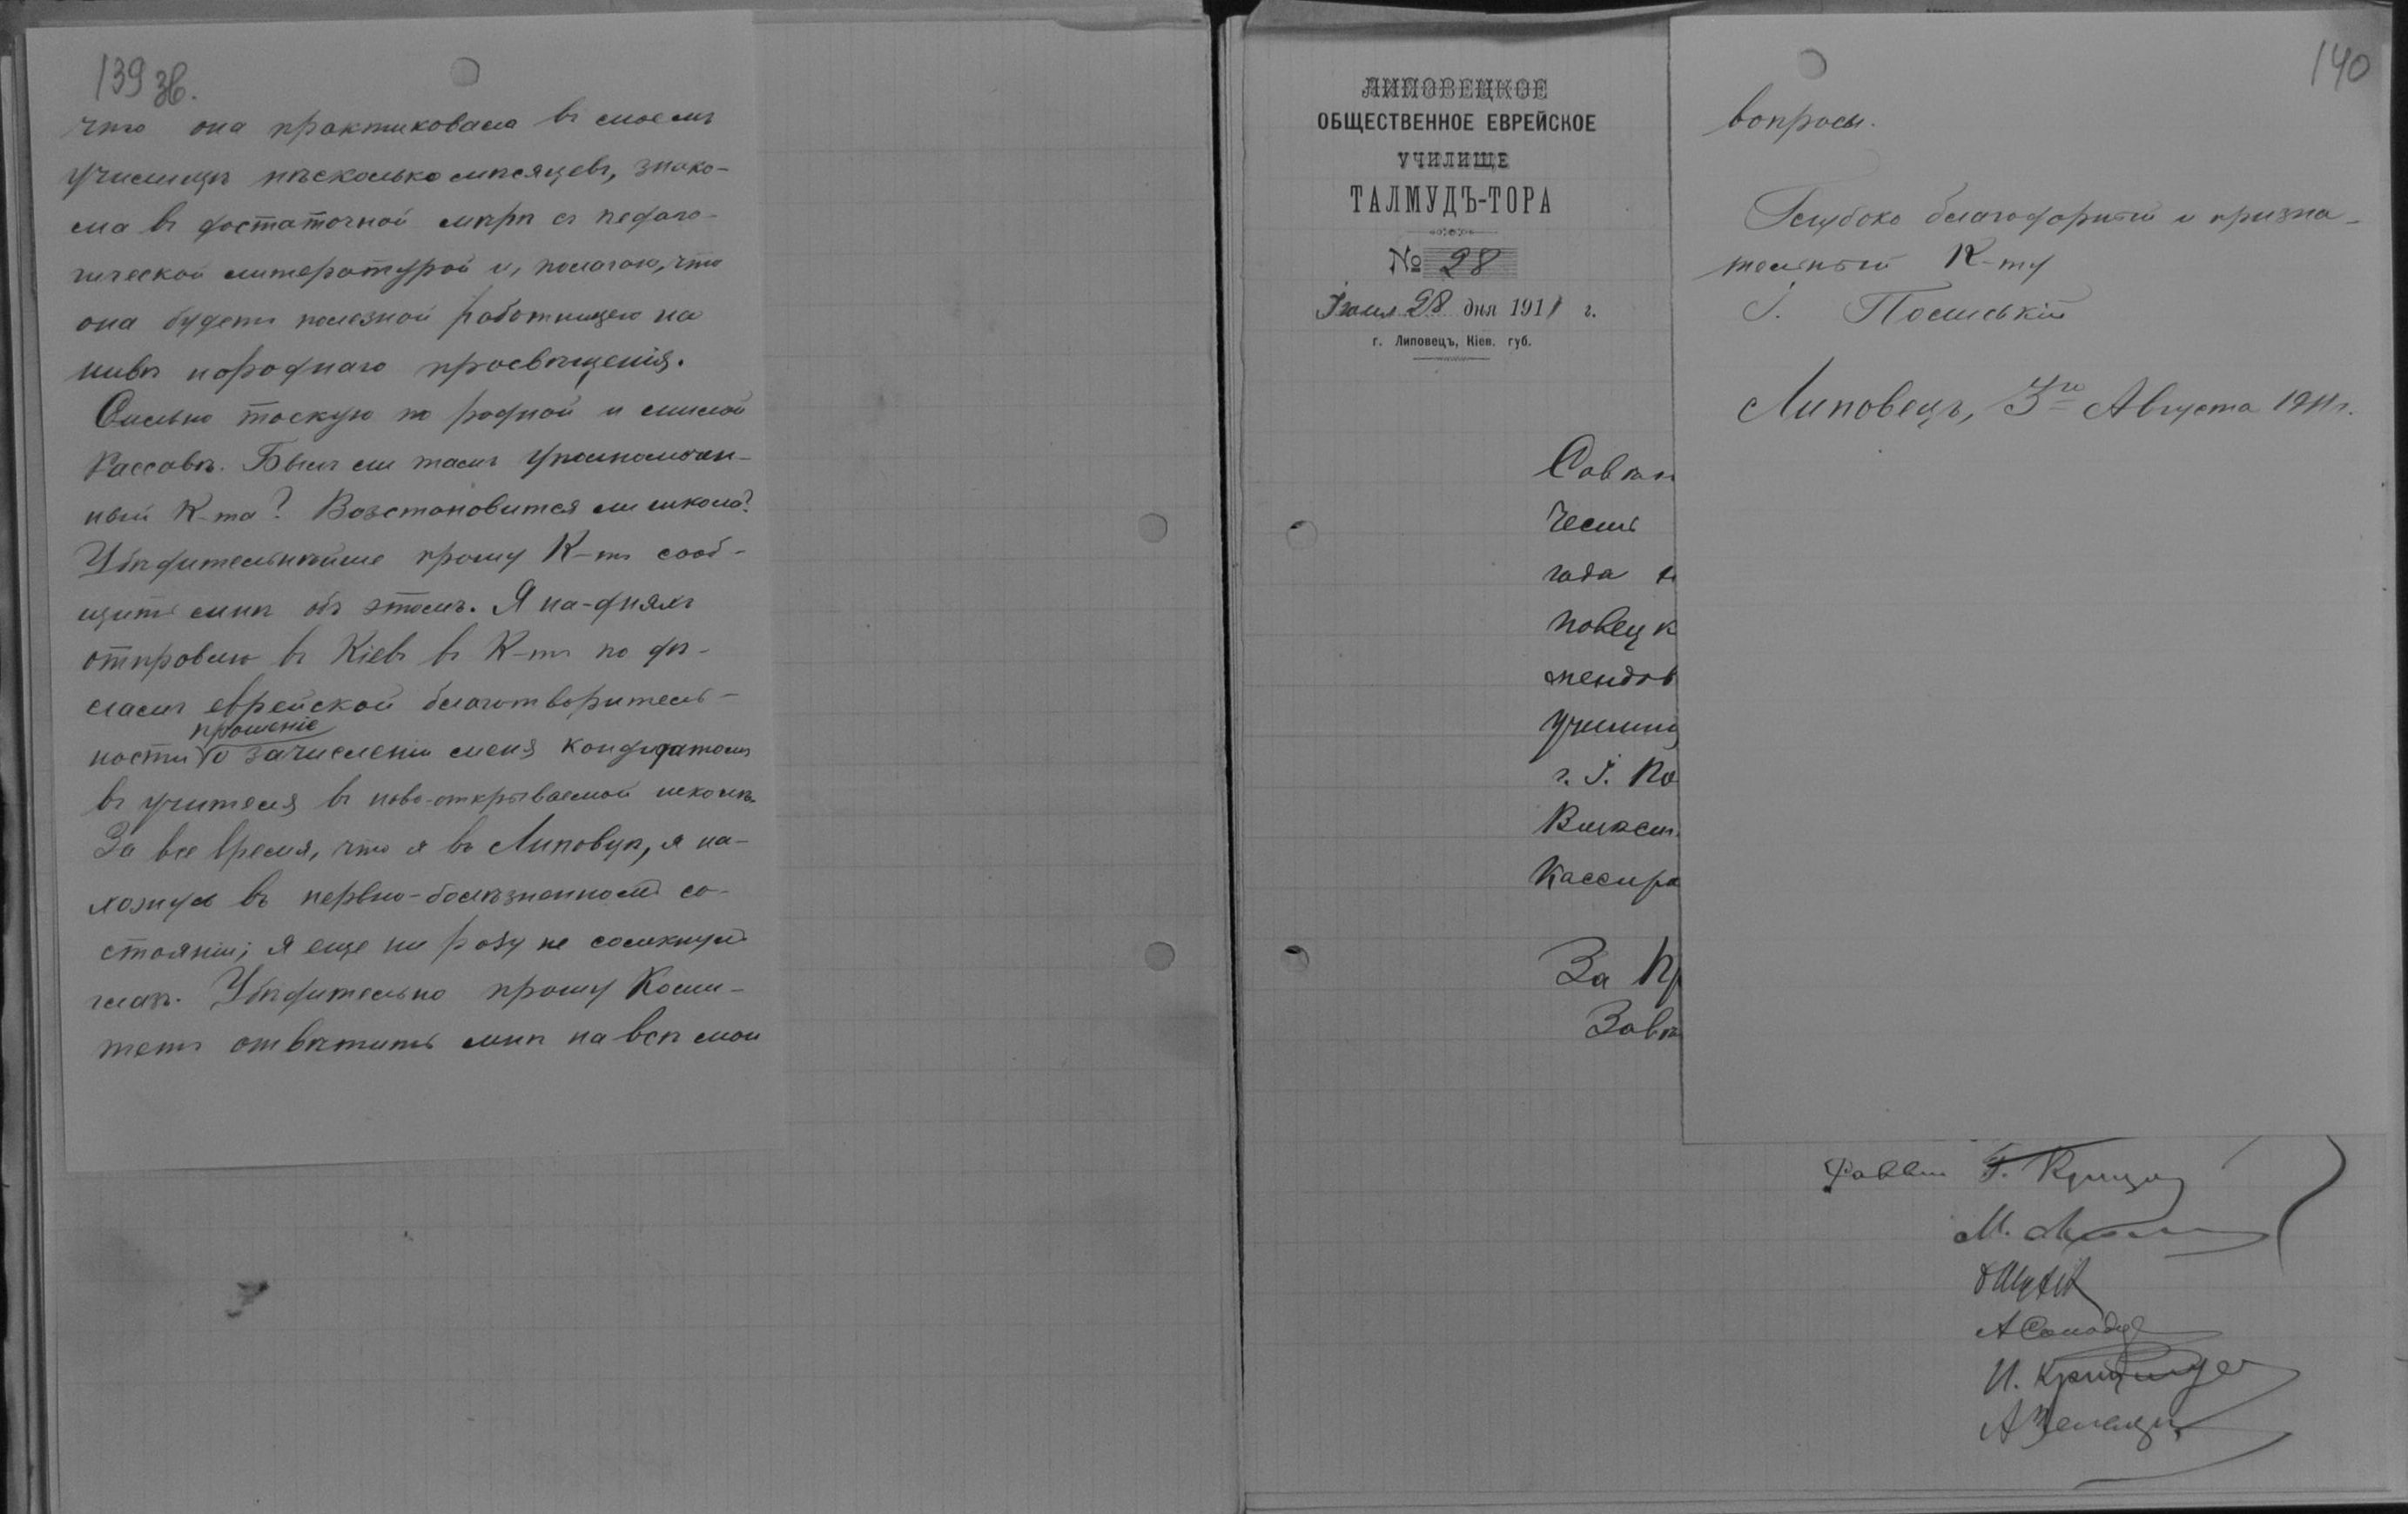 139 зв.
что она практиковала въ моемъ
училищѣ нѣсколько мѣсяцевъ, знако-
ма въ достаточной мѣрѣ съ педаго-
гической литературой и, полагаю, что
она будетъ полезной работницею на
нивѣ народнаго просвѣщенія.
Сильно тоскую по родной и милой
Рассавѣ. Былъ ли тамъ уполномочен-
ный К-та? Возстановится ли школа?
Убѣдительнѣйше прошу К-тъ сооб-
щить мнѣ объ этомъ. Я на-дняхъ
отправлю въ Кіевъ въ К-тъ по дѣ-
ламъ еврейской благотворитель-
прошеніе
ности о зачисленіи меня кандидатомъ
въ учителя въ ново-открываемой школѣ.
За все время, что я въ Липовцѣ, я на-
хожусь въ нервно-болѣзненномъ со-
стояніи; я еще ни разу не сомкнулъ
глазъ. Убѣдительно прошу Коми-
тетъ отвѣтить мнѣ на всѣ мои
ЛИПОВЕЦКОЕ
ОБЩЕСТВЕННОЕ ЕВРЕЙСКОЕ
УЧИЛИЩЕ
ТАЛМУДЪ-ТОРА
№ 28
Іюля 28 дня 1911 г.
г. Липовецъ, Кіев. губ.
Честь
года
повецк
мендов
училищ
г. І. По
Кассира
За Пр
Завѣ
140
вопросы.
Глубоко благодарный и призна-
тельный К-ту
І. Полиській
Липовецъ, 3го Августа 1911г.
М.
И.